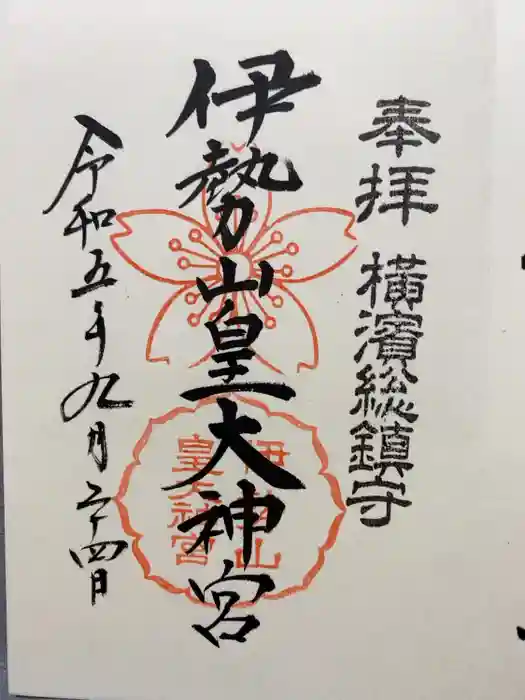 奉拝
横濱総鎮守
伊勢山皇大神宮
伊勢山
皇大神宮
令和五年九月二十四日